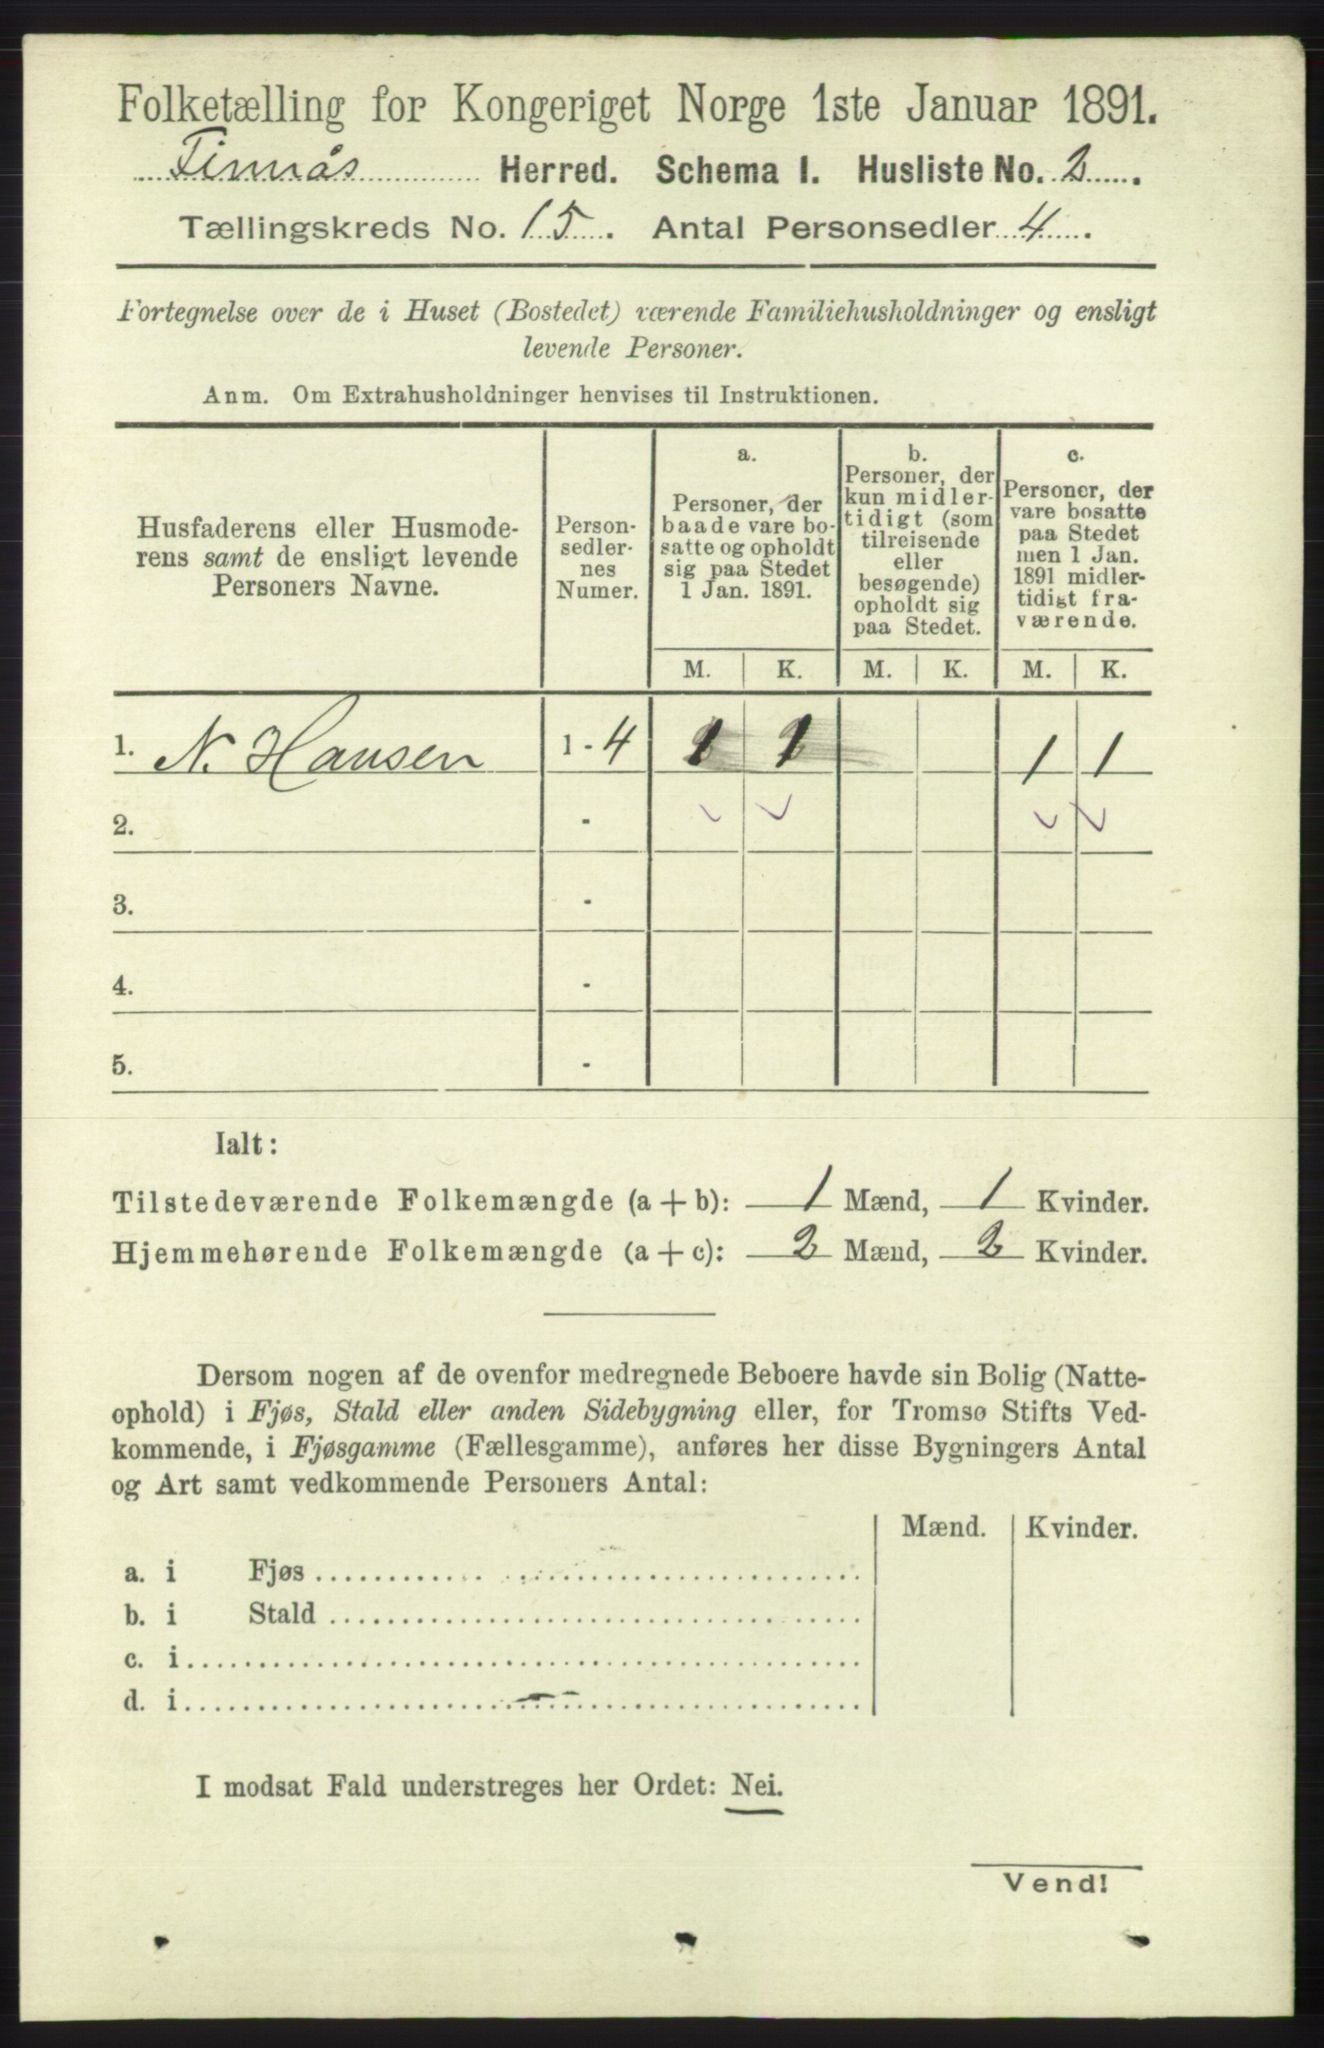 Folketælling for Kongeriget Norge 1ste Januar 1891.
Finnås Herred. Schema I. Husliste No. 2.
Tællingskreds No. 15. Antal Personsedler 4.
Fortegnelse over de i Huset (Bostedet) værende Familiehusholdninger og ensligt
levende Personer.
Anm. Om Extrahusholdninger henvises til Instruktionen.
Husfaderens eller Husmode-
rens samt de ensligt levende
Personers Navne.
Person-
sedler-
nes
Numer.
a.
Personer, der
baade vare bo-
satte og opholdt
sig paa Stedet
1 Jan. 1891.
b.
Personer, der
kun midler-
tidigt (som
tilreisende
eller
besøgende)
opholdt sig
paa Stedet.
c.
Personer, der
vare bosatte
paa Stedet
men 1 Jan.
1891 midler-
tidigt fra-
værende.
M. K. M. K. M. K.
1. N. Hansen 1 - 4 1 1 1 1
2. -
3. -
4. -
5. -
Ialt:
Tilstedeværende Folkemængde (a + b): 1 Mænd, 1 Kvinder.
Hjemmehørende Folkemængde (a + c): 2 Mænd, 2 Kvinder.
Dersom nogen af de ovenfor medregnede Beboere havde sin Bolig (Natte-
ophold) i Fjøs, Stald eller anden Sidebygning eller, for Tromsø Stifts Ved-
kommende, i Fjøsgamme (Fællesgamme), anføres her disse Bygningers Antal
og Art samt vedkommende Personers Antal:
Mænd. Kvinder.
a. i Fjøs
b. i Stald
c. i
d. i
I modsat Fald understreges her Ordet: Nei.
Vend!